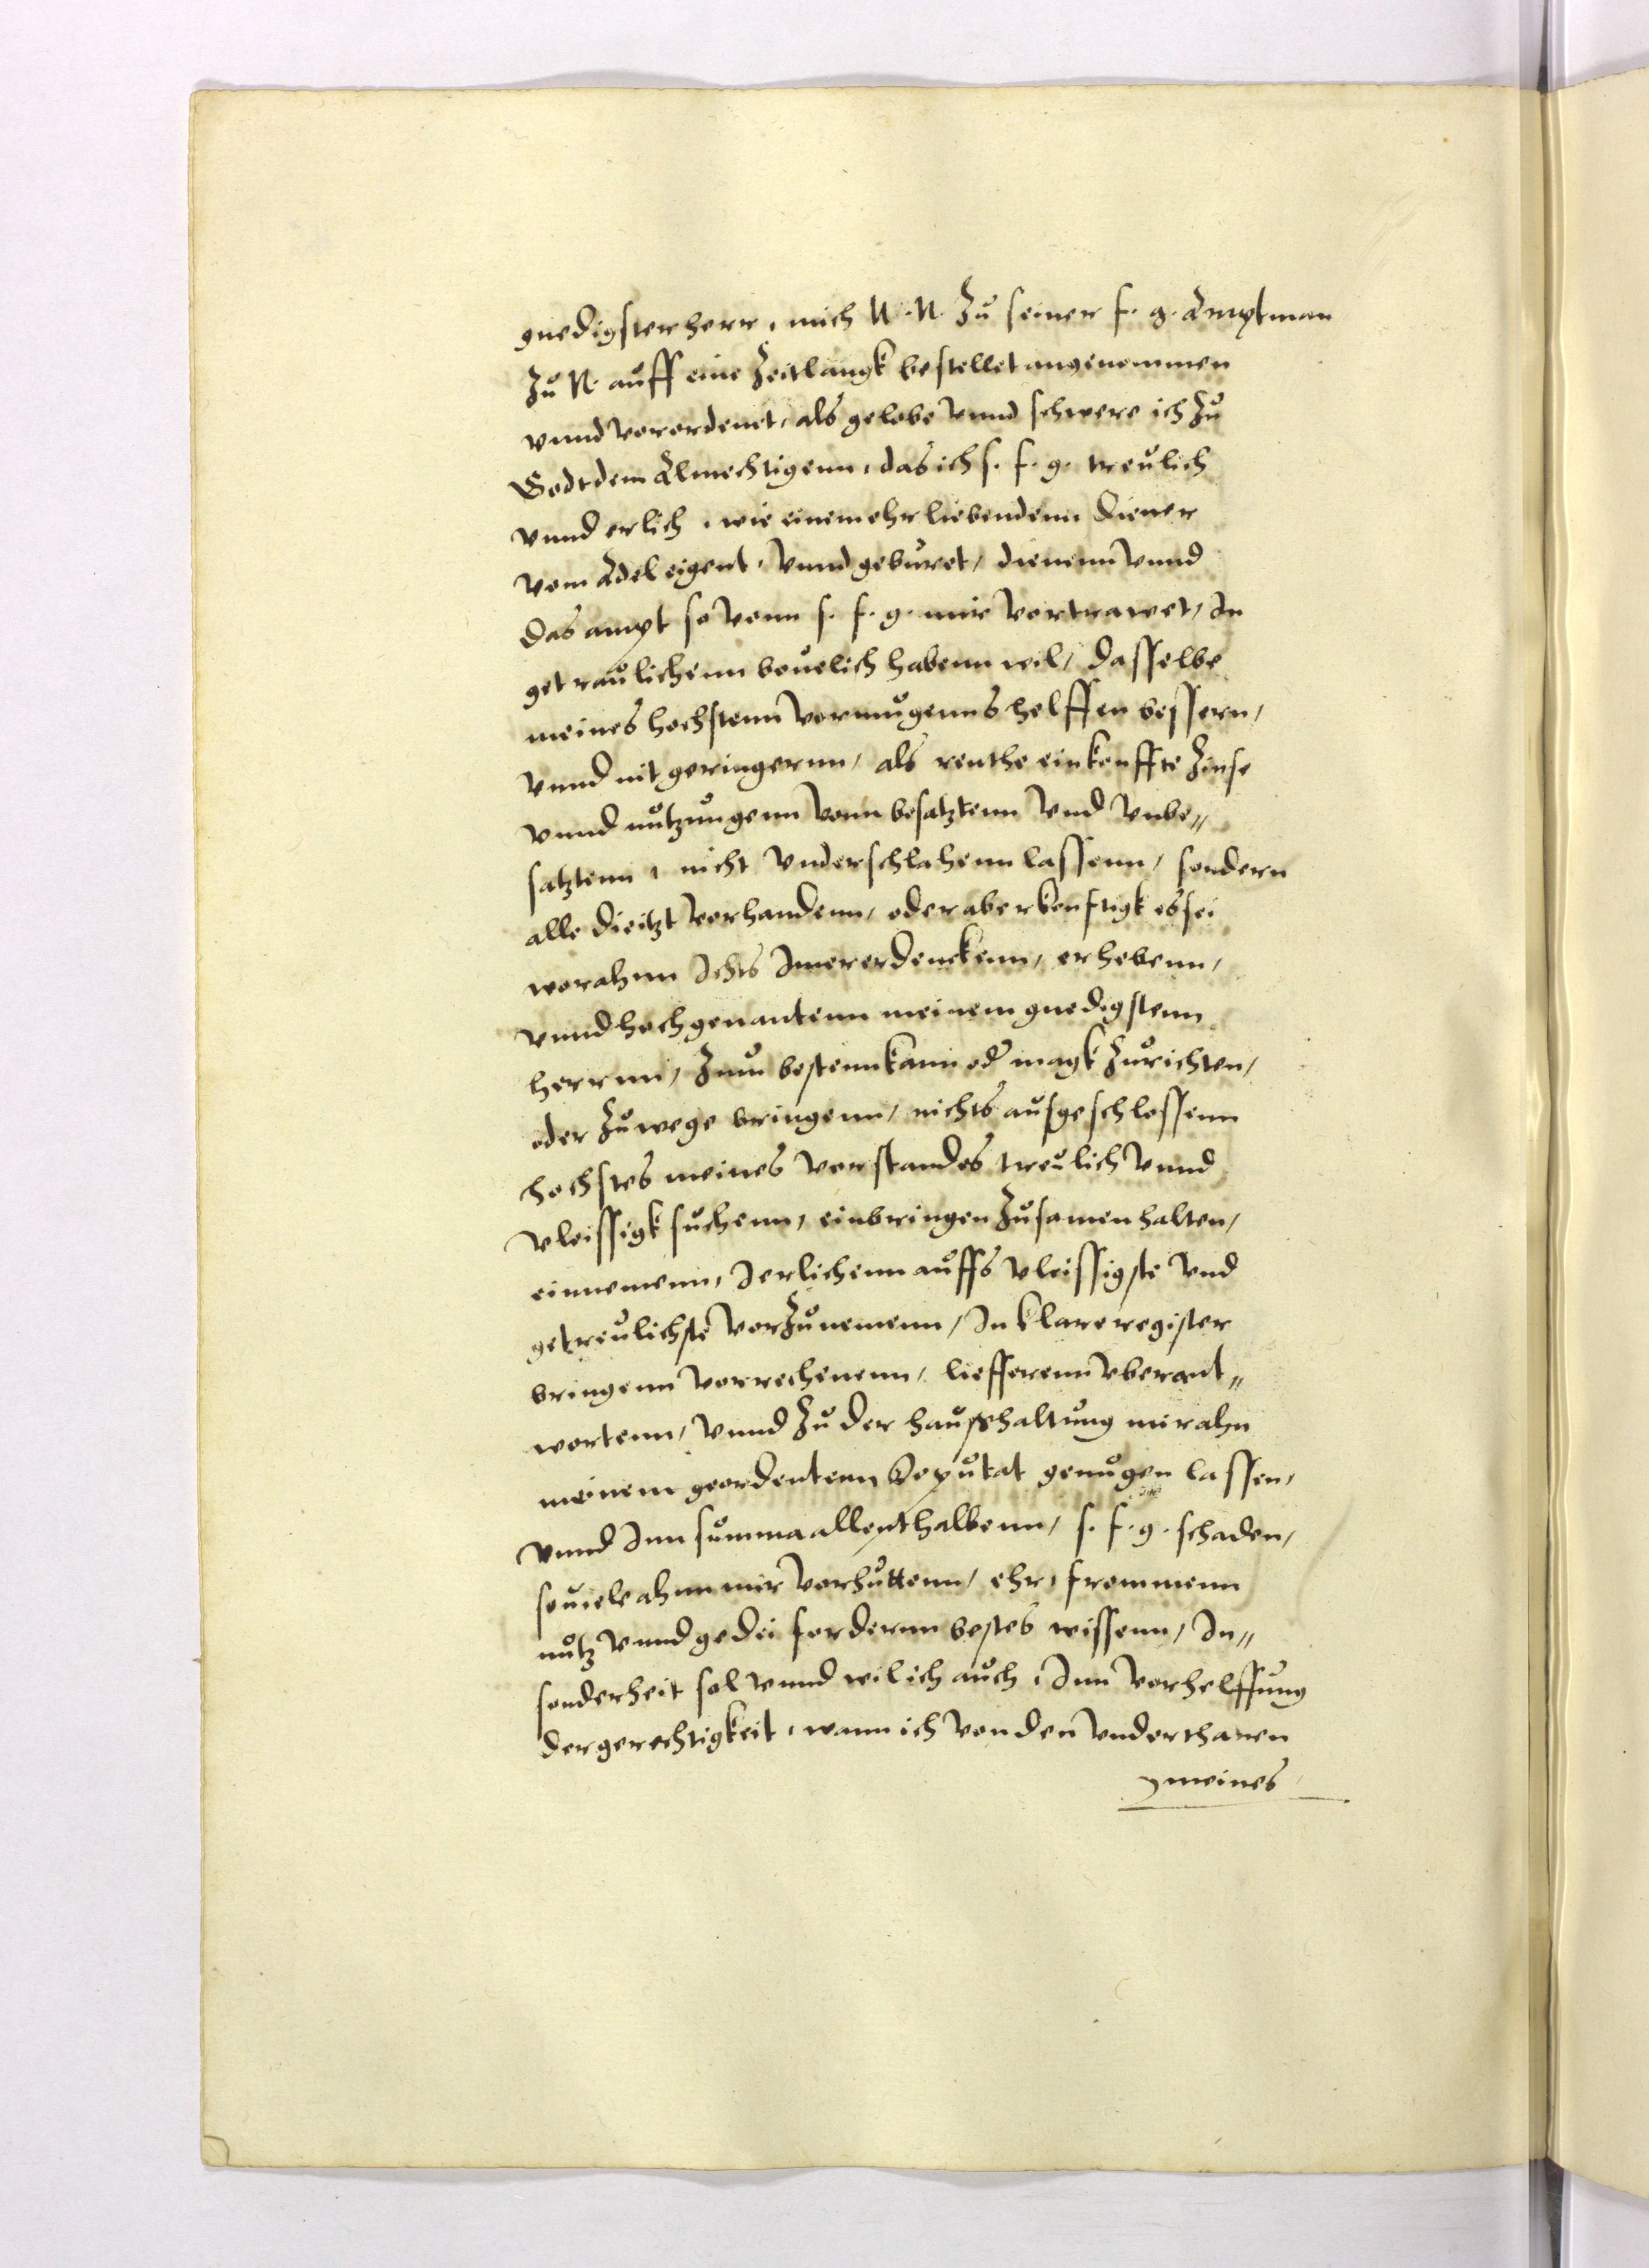 gnedigster herr, mich N. N. zu seiner f. g. Amptman
zu N. auff eine Zeitlangk bestellet angenommen
vnnd verordenet, als gelobe vnnd schwere ich zu
Godt dem Almechtigenn, das ich s. f. g. treulich
vnnd erlich, wie einem ehrliebendenn diener
vom Adel eigent, vnnd geburet, dienenn vnnd
das ampt so vonn s. f. g. mir vertrawet, In
getraulichenn beuelich habenn wil, dasselbe
meines hochstenn vermugenns helffen bessern,
vnnd nit geringernn, als renthe einkonffte Zinse
vnnd nutzungenn vonn besatztenn vnd vnbe„
satztenn, nicht vnderschlahenn lassenn, sondern
alle die itzt vorhandenn, oder aber konftigk es sei
worahnn Ichts Imer erdenckenn, erhebenn,
vnnd hochgenantenn meinem gnedigstenn
herrnn, Zum bestenn kann oder magk zurichten,
oder zu wege bringenn, nichts ausgeschlossenn
hochstes meines verstandes treulich vnnd
vleissigk suchenn, einbringen zusamen halten,
einnemenn, Ierlichenn auffs vleissigste vnd
getreulichste vorzunemenn, In klare register
bringenn verrechenenn, liefferenn vberant„
wortenn, vnnd zu der haushaltung mir ahn
meinem geordentenn Deputat genugen lassen,
vnnd Inn summa allenthalbenn, s. f. g. schaden,
souiele ahnn mir verhuttenn, ehr, frommenn
nutz vnnd gedei fordernn bestes wissenn, In„
sonderheit sol vnnd wil ich auch, Inn verhelffung
der gerechtigkeit, wann ich von den vnderthanen
meines